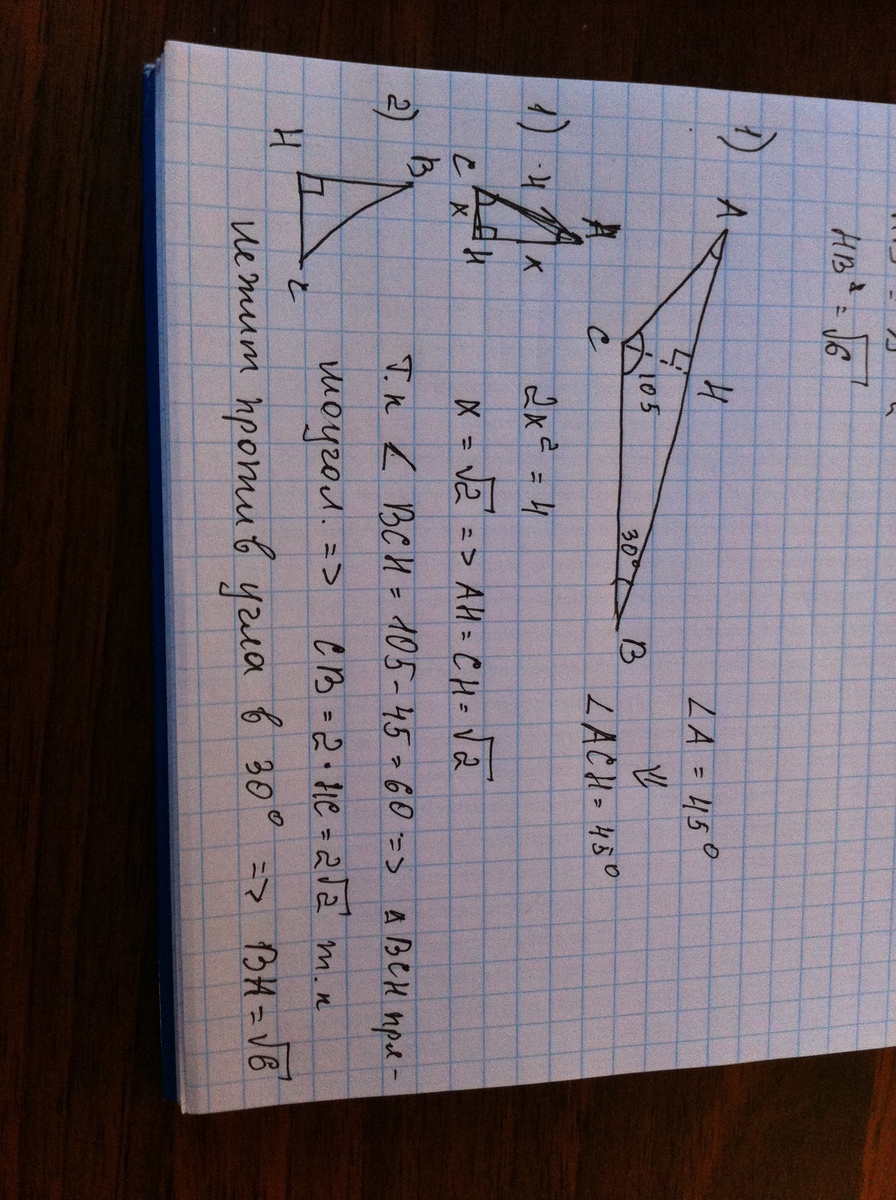 HB² = √6
1)
A
H
C
105
30°
B
∠A = 45°
⇓
∠ACH = 45°
1)
A
C
x
H
x
2x² = 4
x = √2 => AH = CH = √2
2)
B
H
C
Т.к ∠ BCH = 105 - 45 = 60 => ΔBCH пря-
моугол. => CB = 2·HC = 2√2 т.к
лежит против угла в 30° => BH = √6